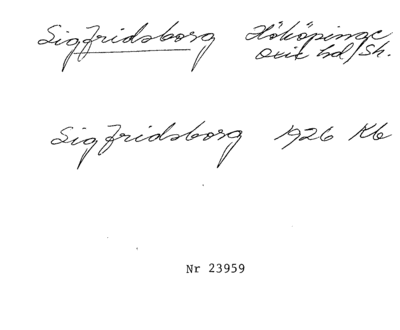 Sigfridsborg Hököpinge
Oxie hd/Sk.
Sigfridsborg 1926 Kb
Nr 23959